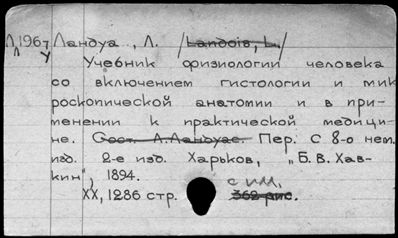 Л 1967 Ландуа, Л. /Landois, L./
У
Учебник физиологии человека
со включением гистологии и мик
роскопической анатомии и в при-
менении к практической медици-
не. Сост. Л.Ландуас. Пер. с 8-о нем.
изд. 2-е изд. Харьков, „Б.В.Хав-
кин", 1894.
с илл.
XX, 1286 стр. 362 рис.